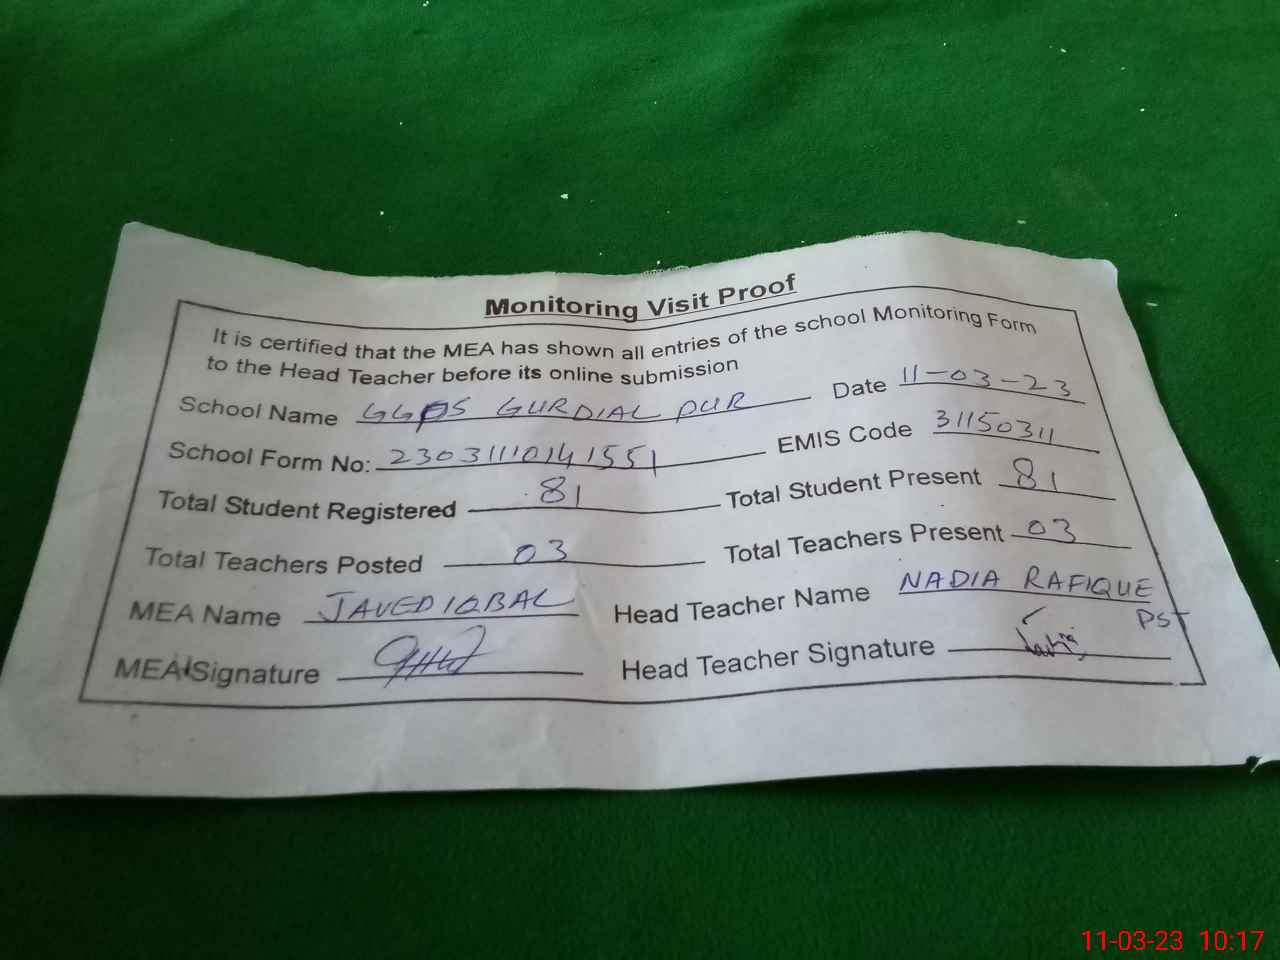 Monitoring Visit Proof
It is certified that the MEA has shown all entries of the school Monitoring Form
to the Head Teacher before its online submission
School Name GGPS GURDIAL PUR Date 11-03-23
School Form No: 23031110141551 EMIS Code 31150311
Total Student Registered 81 Total Student Present 81
Total Teachers Posted 03 Total Teachers Present 03
MEA Name JAVED IQBAL Head Teacher Name NADIA RAFIQUE
PST
MEA Signature Head Teacher Signature
11-03-23 10:17